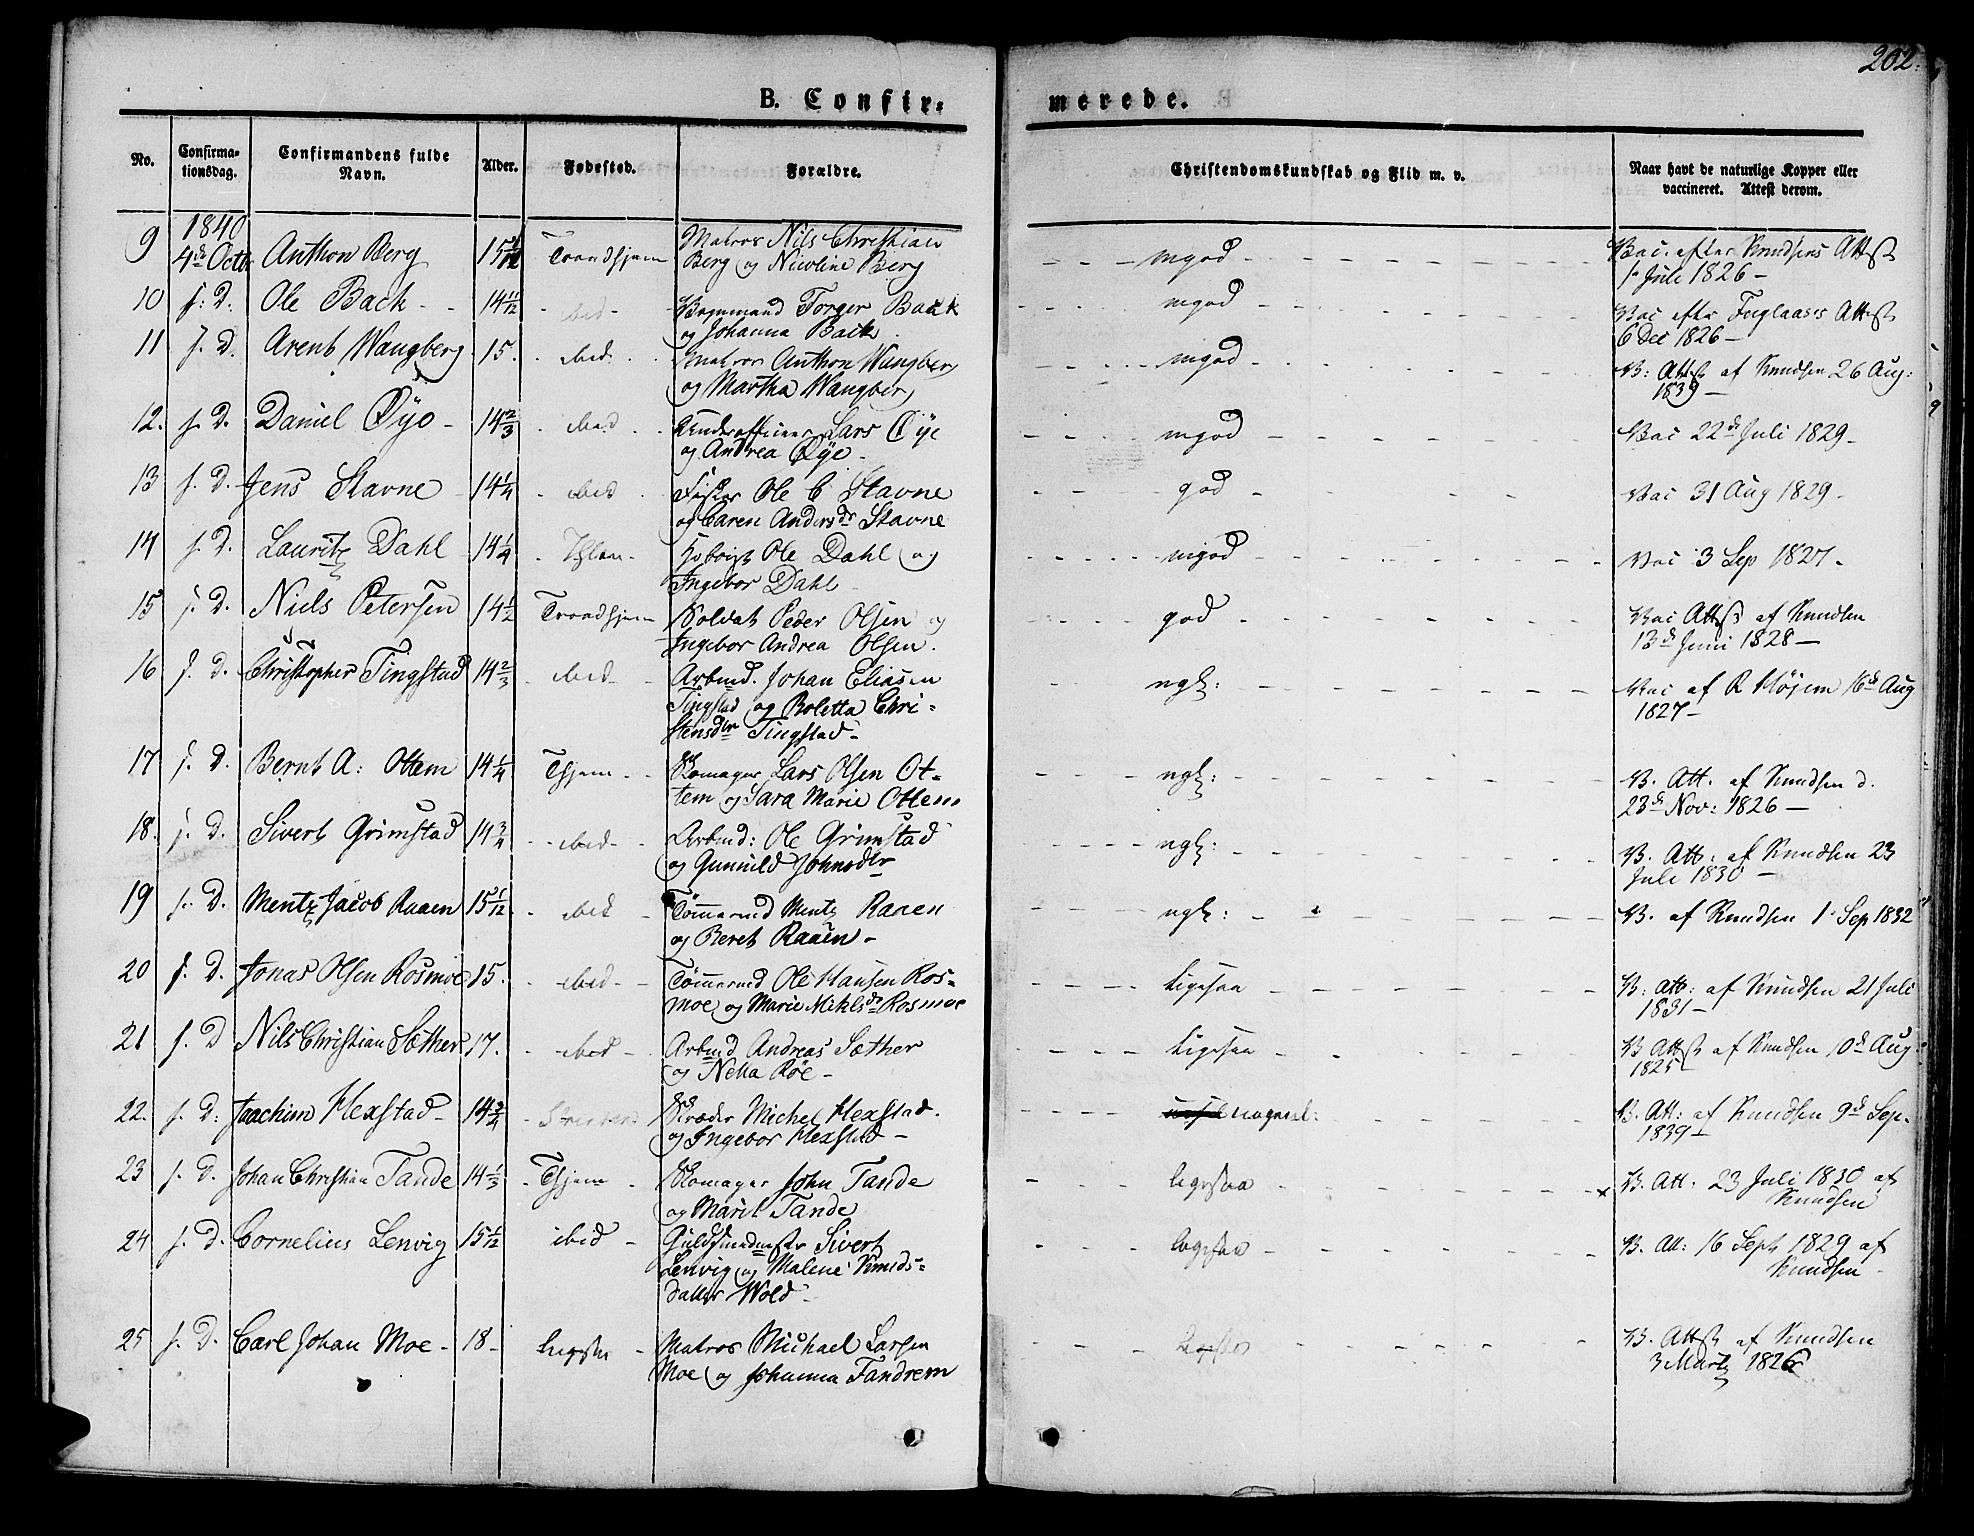 202.
B. Confir-
merede.
No. Confirma-tionsdag. Confirmandens fulde Navn. Alder. Fødested. Forældre. Christendomskundskab og Flid m. v. Naar havt de naturlige Kopper eller vaccineret. Attest derom.
1840
9 4de Octb Anthon Berg 15 Trondhjem Matros Nils Christian
Berg og Nicoline Berg
mgod
Vac. efter Knudsens Attest
1 Juli 1826
10 s. D. Ole Back 14 11/12 ibid Torger Back
og Johanna Back
mgod
Vac efter Fuglaases Attest
6 Dec 1826
11 s. D. Arent Wangberg 15. ibid Matros Anthon Wangberg
og Martha Wangberg
mgod
V: Attest af Knudsen 26 Aug:
1839
12. s. D. Daniel Øyo 14 2/3 ibid Underofficeer Lars Øye
og Andrea Øye
mgod
Vac 22de Juli 1829
13 s. D. Jens Stavne 14 1/4 ibid Fisker Ole C Stavne
og Caren Andersdr Stavne
god
Vac 31 Aug 1829
14 s. D. Lauritz Dahl 14 1/4 Ole Dahl og
Ingebor Dahl
mgod
Vac 3 Sep 1827
15 s. D. Niels Petersen 14 1/2 Trondhjem Soldat Peder Olsen og
Ingebor Andrea Olsen.
god
Vac Attest af Knudsen
13de Juni 1828
16 s. D. Christopher Tingstad 14 2/3 ibid Arbmd. Johan Eliasen
Tingstad og Boletta Chri-
stensdtr Tingstad
ngl:
Vac af R Højem 16de Aug
1827
17 s. D. Bernt A: Ottem 14 1/4 Thjem Skomager Lars Olsen Ot-
tem og Sara Marie Ottem
ngl:
V. Att. af Knudsen d.
23de Nov: 1826
18. s. D. Sivert Grimstad 14 3/4 ibid Arbmd: Ole Grimstad
og Gunnild Johnsdtr
ngl:
V. Att: af Knudsen 23
Juli 1830
19 s. D. Mentz Jacob Raaen 15 1/12 ibid Tømmermd Mentz Raaen
og Beret Raaen
ngl:
V. af Knudsen 1 Sep 1832
20 s. D. Jonas Olsen Rosmoe 15. ibid Tømmermd Ole Hansen Ros-
moe og Marie Niklsdr Rosmoe
Ligesaa
V: Att: af Knudsen 21 Juli
1831
21 s. D Nils Christian Sæther 17. ibid Arbmd Andreas Sæther
og Nella Røe
Ligesaa
V Attst af Knudsen 10de Aug
1825
22. s. D: Joachim Hexstad 14 3/4 Skræder Michel Hexstad.
og Ingebor Hexstad
nogenl:
V. Att: af Knudsen 9de Sep.
1839
23 s. D. Johan Christian Tande 14 1/3 Thjem Skomager John Tande
og Marit Tande
ligesaa
V. Att. 23 Juli 1830 af
Knudsen
24 s. D. Cornelius Lenvig 15 1/12 ibid Guldsmedmester Sivert
Lenvig og Malene Knuds-
datter Wold
ligesaa
V. Att: 16 Septr 1829 af
Knudsen
25 s. D. Carl Johan Moe 18 Ligesaa Matros Michael Larsen
Moe og Johanna Tandrem
V. Attst af Knudsen
3 Martz 1826